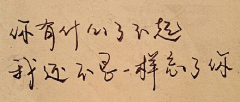 你有什么了不起
我还不是一样忘了你